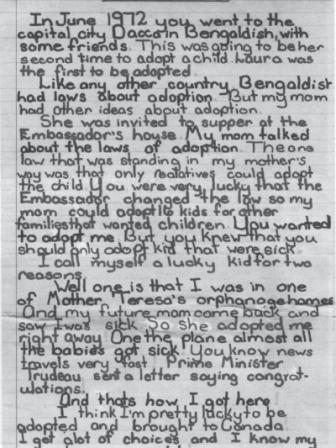 In June 1972 you went to the
capital city Dacca in Bengaldish, with
some friends. This was going to be her
second time to adopt a child. Laura was
the first to be adopted.
Like any other country Bengaldist
had laws about adoption. But my mom
had other ideas about adoption.
She was invited to supper at the
Embassador's house. My mom talked
about the laws of adoption. The one
law that was standing in my mother's
way was that only realatives could adopt
the child. You were very lucky that the
Embassador changed the law so my
mom could adopt 16 kids for other
families that wanted children. You wanted
to adopt me. But you knew that you
should only adopt kid that were sick.
I call myself a lucky kid for two
reasons.
Well one is that I was in one
of Mother Teresa's orphanage homes.
And my future mom came back and
saw I was sick. So she adopted me
right away. One the plane almost all
the babies got sick. You know news
travels very fast. Prime Minister
Trudeau sent a letter saying congrat-
ulations.
And thats how I got here
I think I'm pretty lucky to be
adopted and brought to Canada.
I get alot of choices and I know my